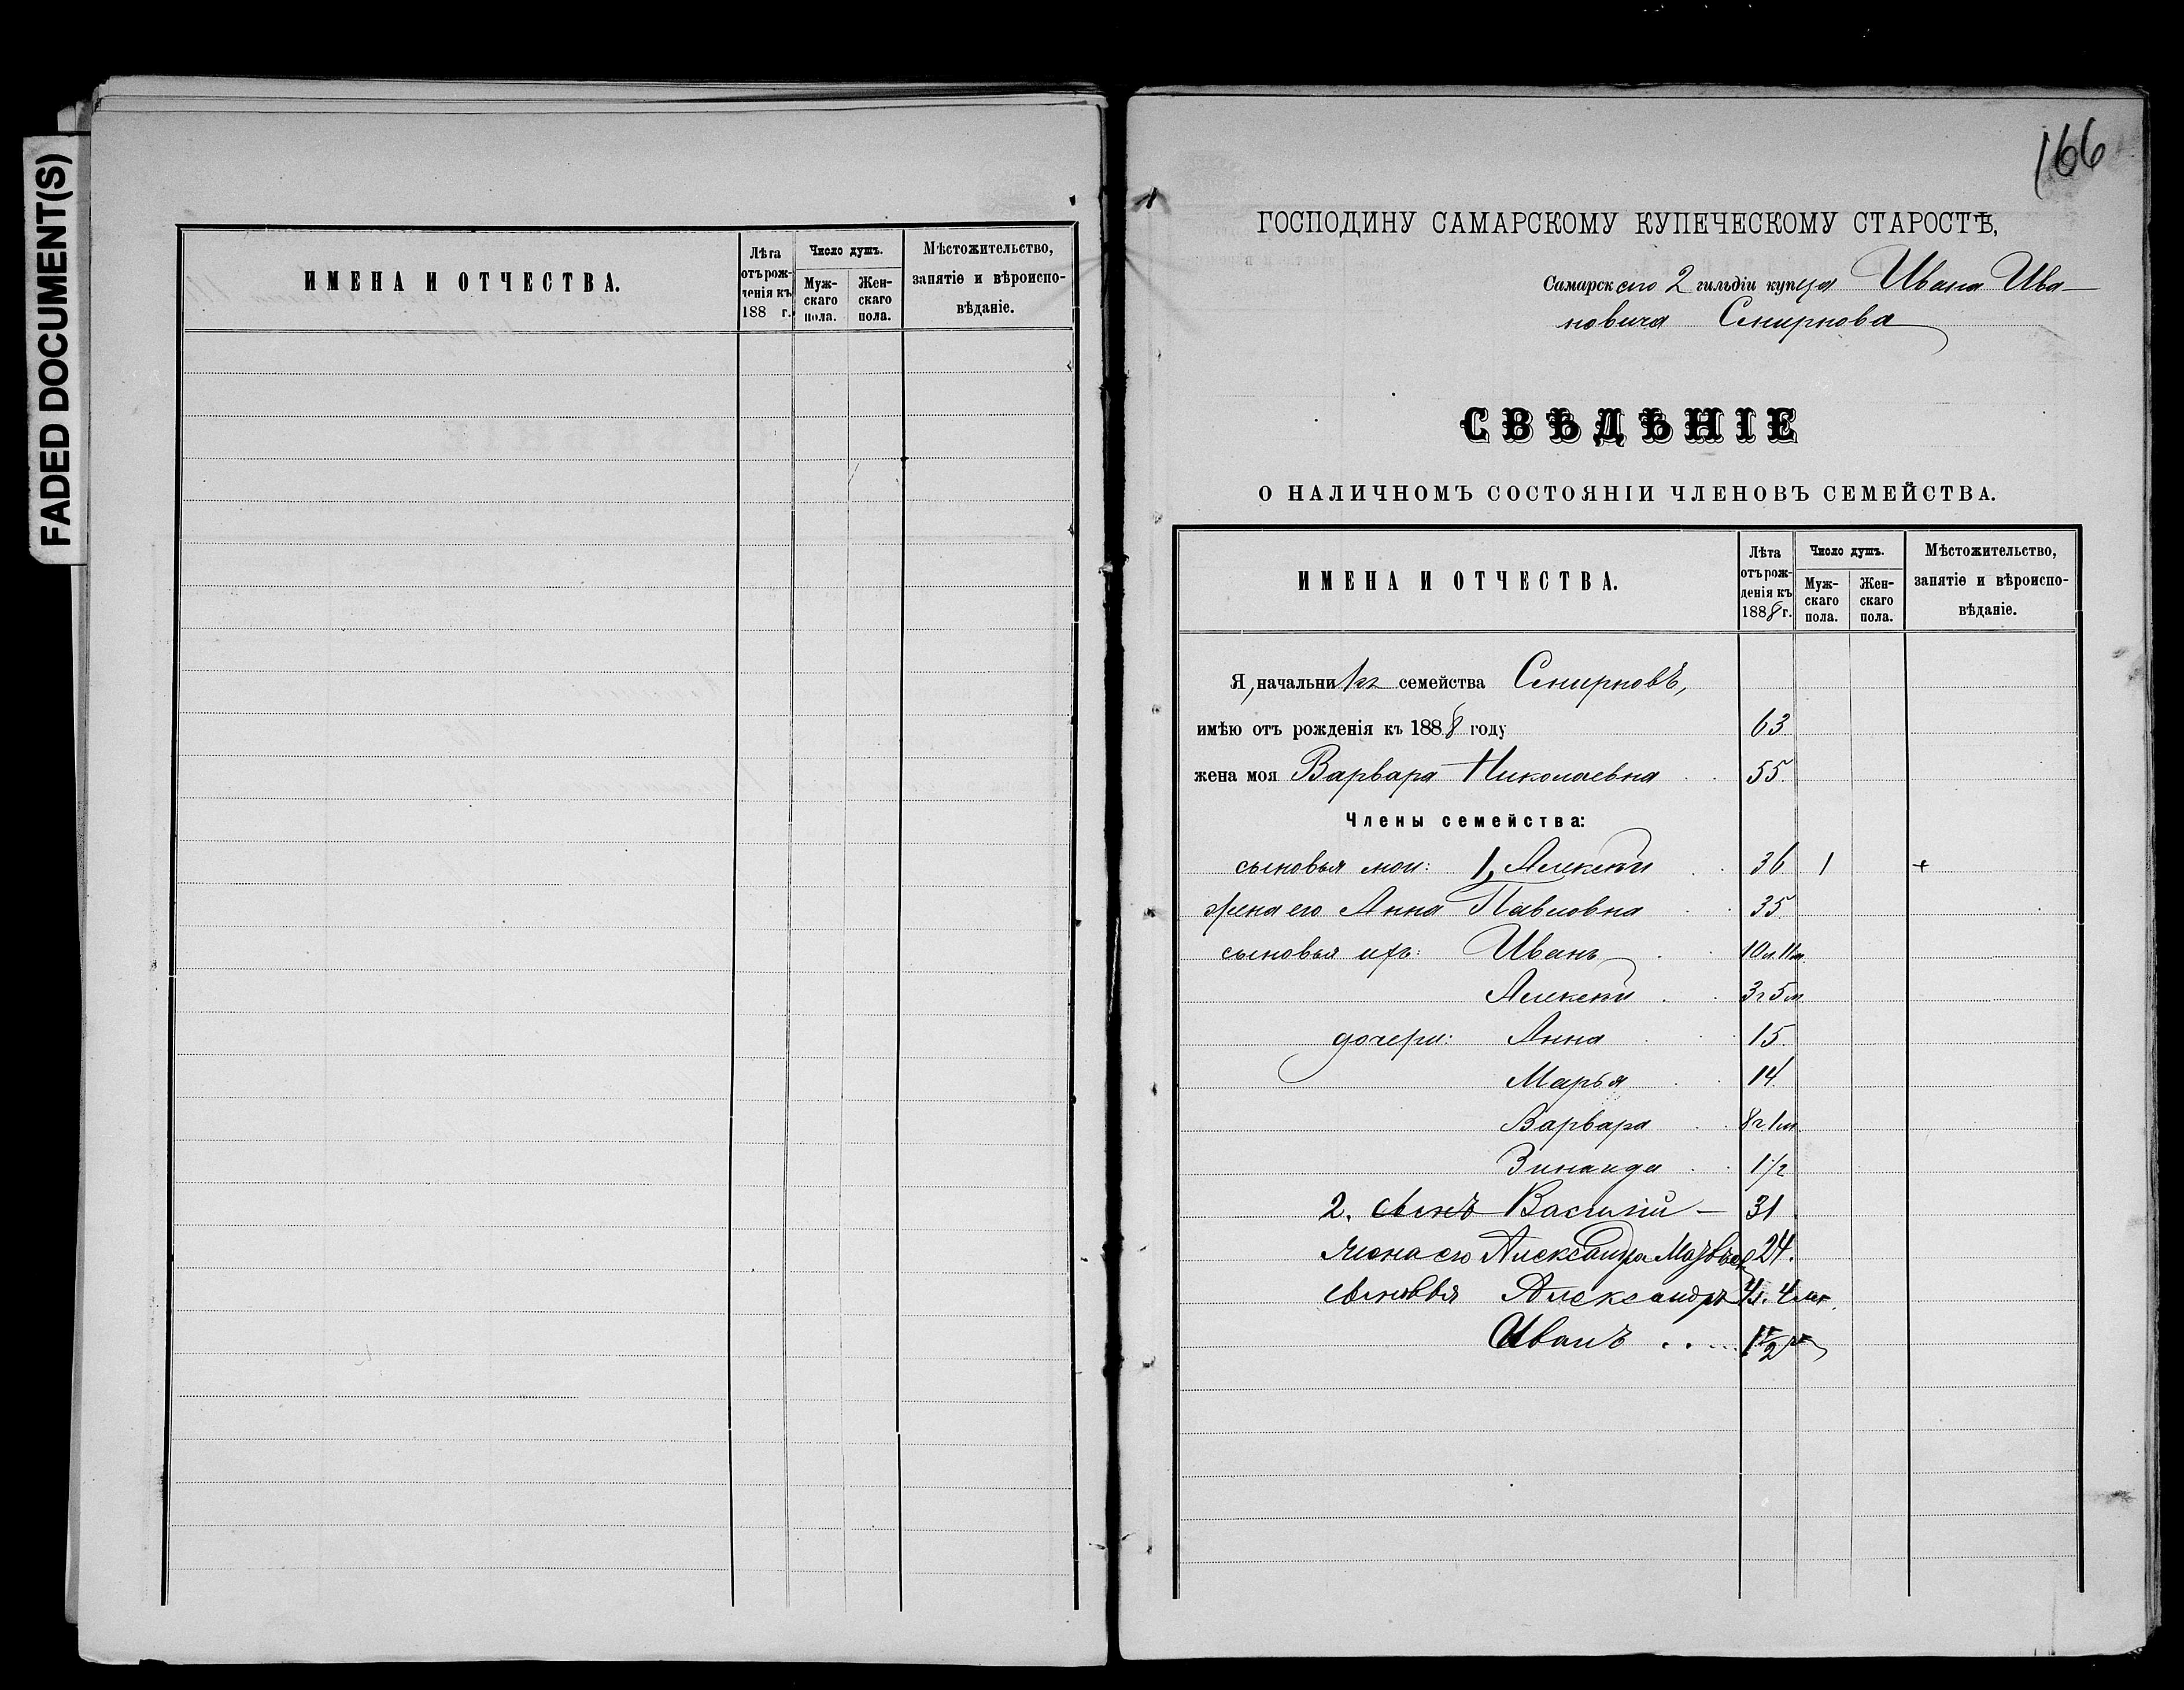 FADED DOCUMENT(S)
ИМЕНА И ОТЧЕСТВА.
Лѣта
отъ рож-
денія къ
188 г.
Число душъ.
Муж-
скаго
пола.
Жен-
скаго
пола.
Мѣстожительство,
занятіе и вѣроиспо-
вѣданіе.
166
ГОСПОДИНУ САМАРСКОМУ КУПЕЧЕСКОМУ СТАРОСТѢ,
Самарскаго 2 гильдіи купца Ивана Ива-
новича Смирнова
СВѢДѢНІЕ
О НАЛИЧНОМЪ СОСТОЯНІИ ЧЛЕНОВЪ СЕМЕЙСТВА.
ИМЕНА И ОТЧЕСТВА.
Лѣта
отъ рож-
денія къ
1888 г.
Число душъ.
Муж-
скаго
пола.
Жен-
скаго
пола.
Мѣстожительство,
занятіе и вѣроиспо-
вѣданіе.
Я, начальникъ семейства Смирновъ,
имѣю отъ рожденія къ 1888 году 63
жена моя Варвара Николаевна 55.
Члены семейства:
сыновья мои: 1, Алексѣй 36 1 +
жена его Анна Павловна 35.
сыновья ихъ: Иванъ 10 л. 11 м.
Алексѣй 3 г 5 м.
дочери: Анна 15.
Марья 14
Варвара 8 г. 1 м.
Зинаида 1 1/2
2. сынъ Василій — 31
жена его Александра 24.
сыновья Александръ 4 л. 4 м.
Иванъ 1 1/2 г